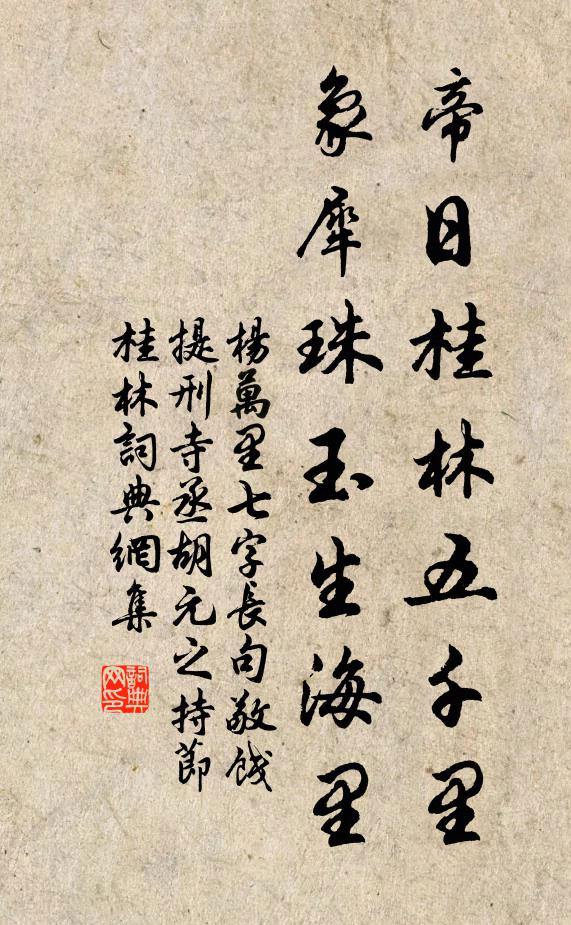 帝日桂林五千里
象犀珠玉生海里
楊萬里七字長句敬餞
提刑寺丞胡元之持節
桂林詞典網集
詞典
网印